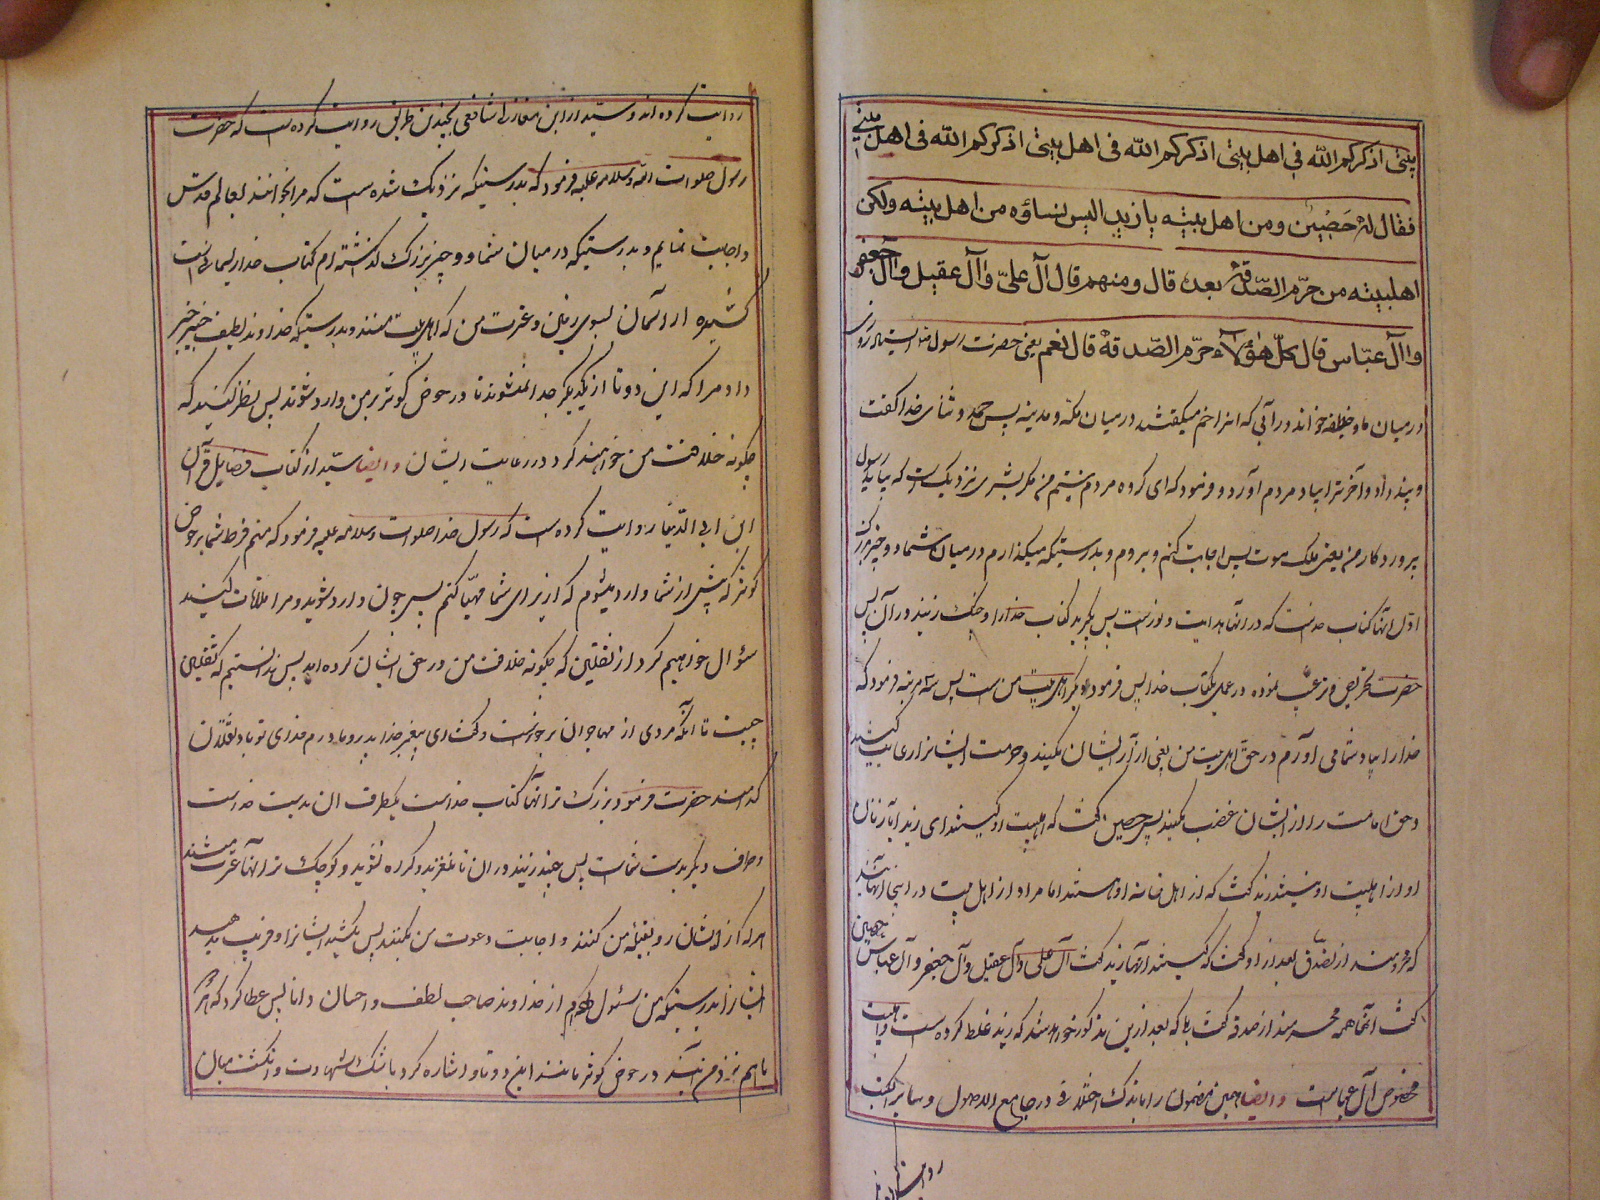 بیتی اذکرکم الله فی اهل بیتی اذکرکم الله فی اهل بیتی اذکرکم الله فی اهل بیتی
فقال له حصین ومن اهل بیته یا زید الیس نساؤه من اهل بیته ولکن
اهلبیته من حرّم الصّدقة بعده قال ومنهم قال آل علیّ وآل عقیل وآل جعفر
وآل عبّاس قال کلّ هؤلاء حرّم الصّدقة قال نعم یعنی حضرت رسول روزی
در میان ما خطبه خواند در آبی که انرا خم میکفتند در میان مکه و مدینه پس حمد و ثنای خدا کفت
و پند داد و آخرترا بیاد مردم آورد و فرمود که ای کروه مردم نیستم من مکر بشری نزدیک است که بیاید رسول
پروردکار من یعنی ملک موت پس اجابت کنم و بروم و بدرستیکه میکذارم در میان شما دو چیز بزرک
اوّل انها کتاب خداست که در انها هدایت و نورست پس بکیرید کتاب خدا را و چنک زنید در آن پس
حضرت تحریص و ترغیب نموده در عمل بکتاب خدا پس فرمود و دیکر اهل بیت من است پس سه مرتبه فرمود که
خدا را بیاد شما می آورم در حق اهل بیت من یعنی ازار ایشان نکنید و حرمت ایشانرا رعایت کنید
و حق امامت را از ایشان غصب نکنید پس حصین کفت که اهلبیت او کیستند ای زید ایا زنان
او از اهلبیت او نیستند زید کفت که از اهل خانه او هستند اما مراد از اهل بیت در اینجا انهایند
که محرومند از تصدّق بعد از او کفت که کیستند انها زید کفت آل علی و آل عقیل و آل جعفر و آل عباس حصین
کفت انها همه محرومند از صدقه کفت بلی که بعد از این مذکور خواهد شد که زید غلط کرده است و اهلبیت
مخصوص آل عباست و ایضا همین مضمون را باندک اختلافی در جامع الاصول و سایر کتب
روایت کرده اند و سید از ابن مغازلی شافعی بچندین طریق روایت کرده است که حضرت
رسول صلوات الله و سلامه علیه فرمود که بدرستیکه نزدیک شده است که مرا بخوانند بعالم قدس
و اجابت نمایم و بدرستیکه در میان شما دو چیز بزرک کذاشته ام کتاب خدا ریسمانی است
کشیده از آسمان بسوی زمین و عترت من که اهل بیت منند و بدرستیکه خداوند لطیف خبیر خبر
داد مرا که این دو تا از یکدیکر جدا نمیشوند تا در حوض کوثر بر من وارد شوند پس نظر کنید که
چکونه خلافت من خواهید کرد در رعایت ایشان و ایضا سیّد از کتاب فضایل قرآن
ابن ابی الدنیا روایت کرده است که رسول خدا صلوات و سلامه علیه فرمود که منم فرط شما بر حوض
کوثر که پیش از شما وارد میشوم که از برای شما مهیّا کنم پس چون وارد شوید و مرا ملاقات کنید
سؤال خواهم کرد از ثقلین که چکونه خلافت من در حق ایشان کرده اید پس ندانستیم که ثقلین
چیست تا آنکه مردی از مهاجران برخواست و کفت ای پیغمبر خدا پدر و مادرم فدای تو باد ثقلان
کدامند حضرت فرمود بزرک تر انها کتاب خداست یکطرف ان بدست خداست
و طرف دیکر بدست شماست پس چنک زنید در ان تا نلغزید و کمراه نشوید و کوچک تر انها عترت منند
هر که از ایشان رو بقبله من کنند و اجابت دعوت من بکنند پس مکشید ایشانرا و فریب مدهید
ایشانرا بدرستیکه من سئوال کردم از خداوند صاحب لطف و احسان و انا پس عطا کرد که هر دو
با هم نزد من آیند در حوض کوثر مانند این دو تا و اشاره کرد باشک شهادت و انکشت میان